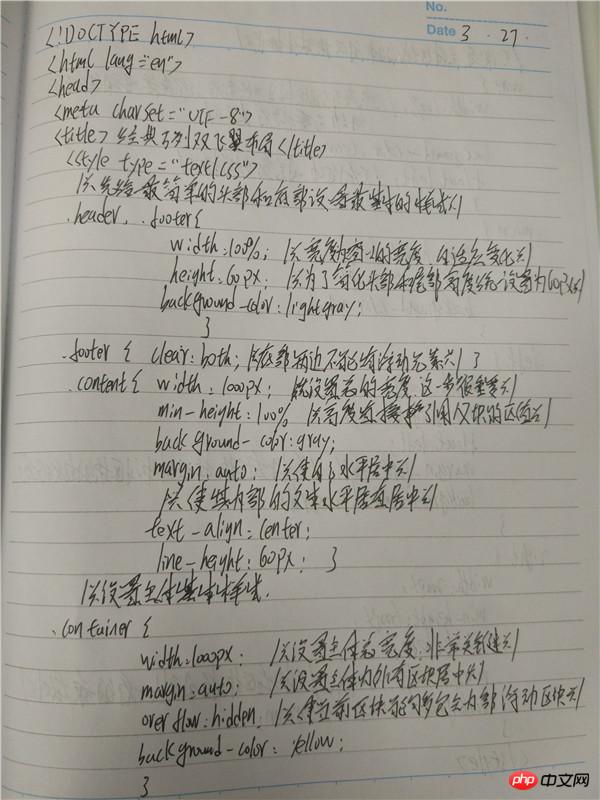 No.
Date 3.27.
<!DOCTYPE html>
<html lang="en">
<head>
<meta charset="UTF-8">
<title>经典三列双飞翼布局</title>
<style type="text/css">
/*先给最简单的头部和底部设置最基本的样式*/
.header, .footer{
width:100%; /*宽度为窗口的宽度,自适应变化*/
height:60px; /*为了简化头部和尾部高度统一设置为60px*/
background-color:lightgray;
}
.footer { clear:both; /*底部两边不允许有浮动元素*/ }
.content{ width:1000px; /*设置总的宽度,这一步很重要*/
min-height:100% /*高度直接引用父块的值*/
background-color:gray;
margin:auto; /*使自己水平居中*/
/*使其内部的文本水平垂直居中*/
text-align:center;
line-height:60px; }
/*设置主体基本样式
.container {
width:1000px; /*设置主体总宽度,非常关键*/
margin:auto; /*设置主体内所有区块居中*/
overflow:hidden /*使当前区块能够包含内部浮动区块*/
background-color:yellow;
}
php中文网